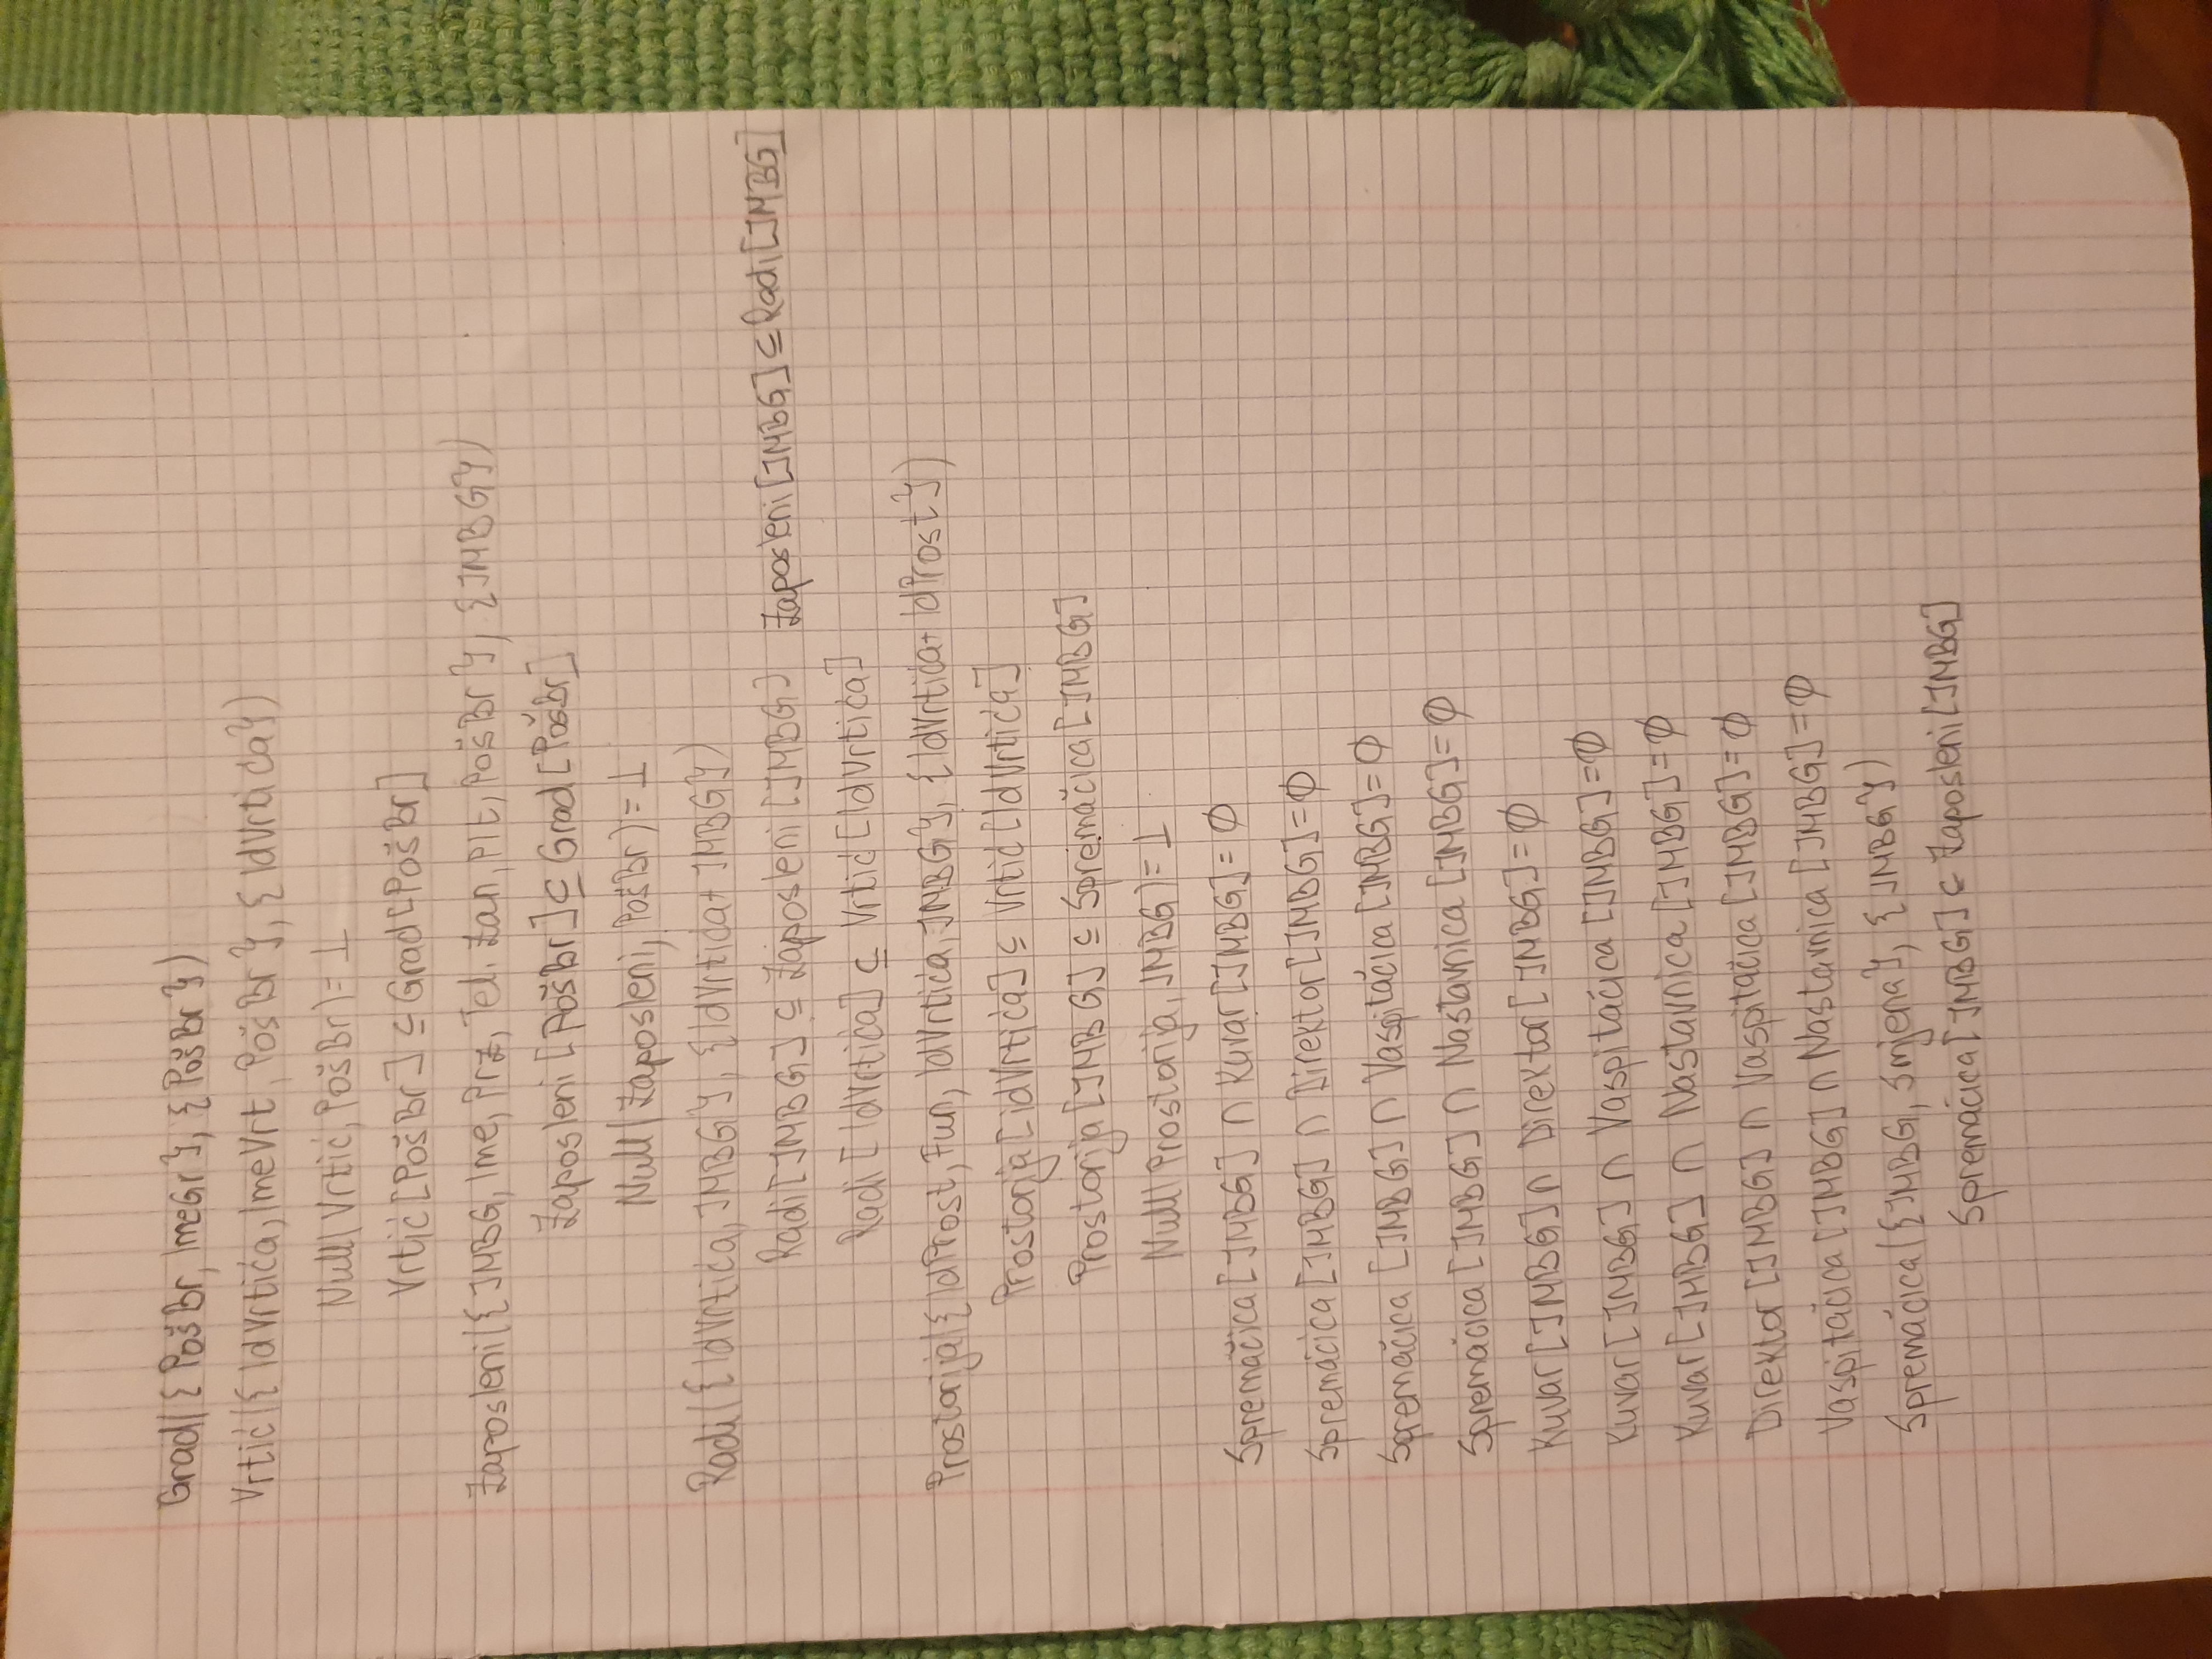 Grad({PošBr, ImeGr}, {PošBr})
Vrtić({IdVrtića, ImeVrt, PošBr}, {IdVrtića})
Null(Vrtić, PošBr)=⊥
Vrtić[PošBr]⊆Grad[PošBr]
Zaposleni({JMBG, Ime, Prz, Tel. Zan, Plt, PošBr}, {JMBG})
Zaposleni[PošBr]⊆Grad[PošBr]
Null(Zaposleni, PošBr)=⊥
Radi({IdVrtića, JMBG}, {IdVrtića+JMBG})
Radi[JMBG]⊆Zaposleni[JMBG] Zaposleni[JMBG]⊆Radi[JMBG]
Radi[IdVrtića]⊆Vrtić[IdVrtića]
Prostorija({IdProst, Fun, IdVrtića, JMBG}, {IdVrtića+IdProst})
Prostorija[idVrtića]⊆Vrtić[IdVrtića]
Prostorija[JMBG]⊆Spremačica[JMBG]
Null(Prostorija, JMBG)=⊥
Spremačica[JMBG]∩Kuvar[JMBG]=∅
Spremačica[JMBG]∩Direktor[JMBG]=∅
Spremačica[JMBG]∩Vaspitačica[JMBG]=∅
Spremačica[JMBG]∩Nastavnica[JMBG]=∅
Kuvar[JMBG]∩Direktor[JMBG]=∅
Kuvar[JMBG]∩Vaspitačica[JMBG]=∅
Kuvar[JMBG]∩Nastavnica[JMBG]=∅
Direktor[JMBG]∩Vaspitačica[JMBG]=∅
Vaspitačica[JMBG]∩Nastavnica[JMBG]=∅
Spremačica({JMBG, Smjena}, {JMBG})
Spremačica[JMBG]⊆Zaposleni[JMBG]